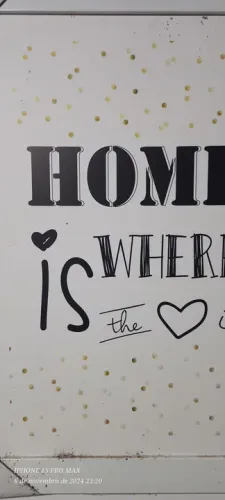 HOME
IS WHERE
the
IPHONE 13 PRO MAX
6 de novembro de 2024 22:20